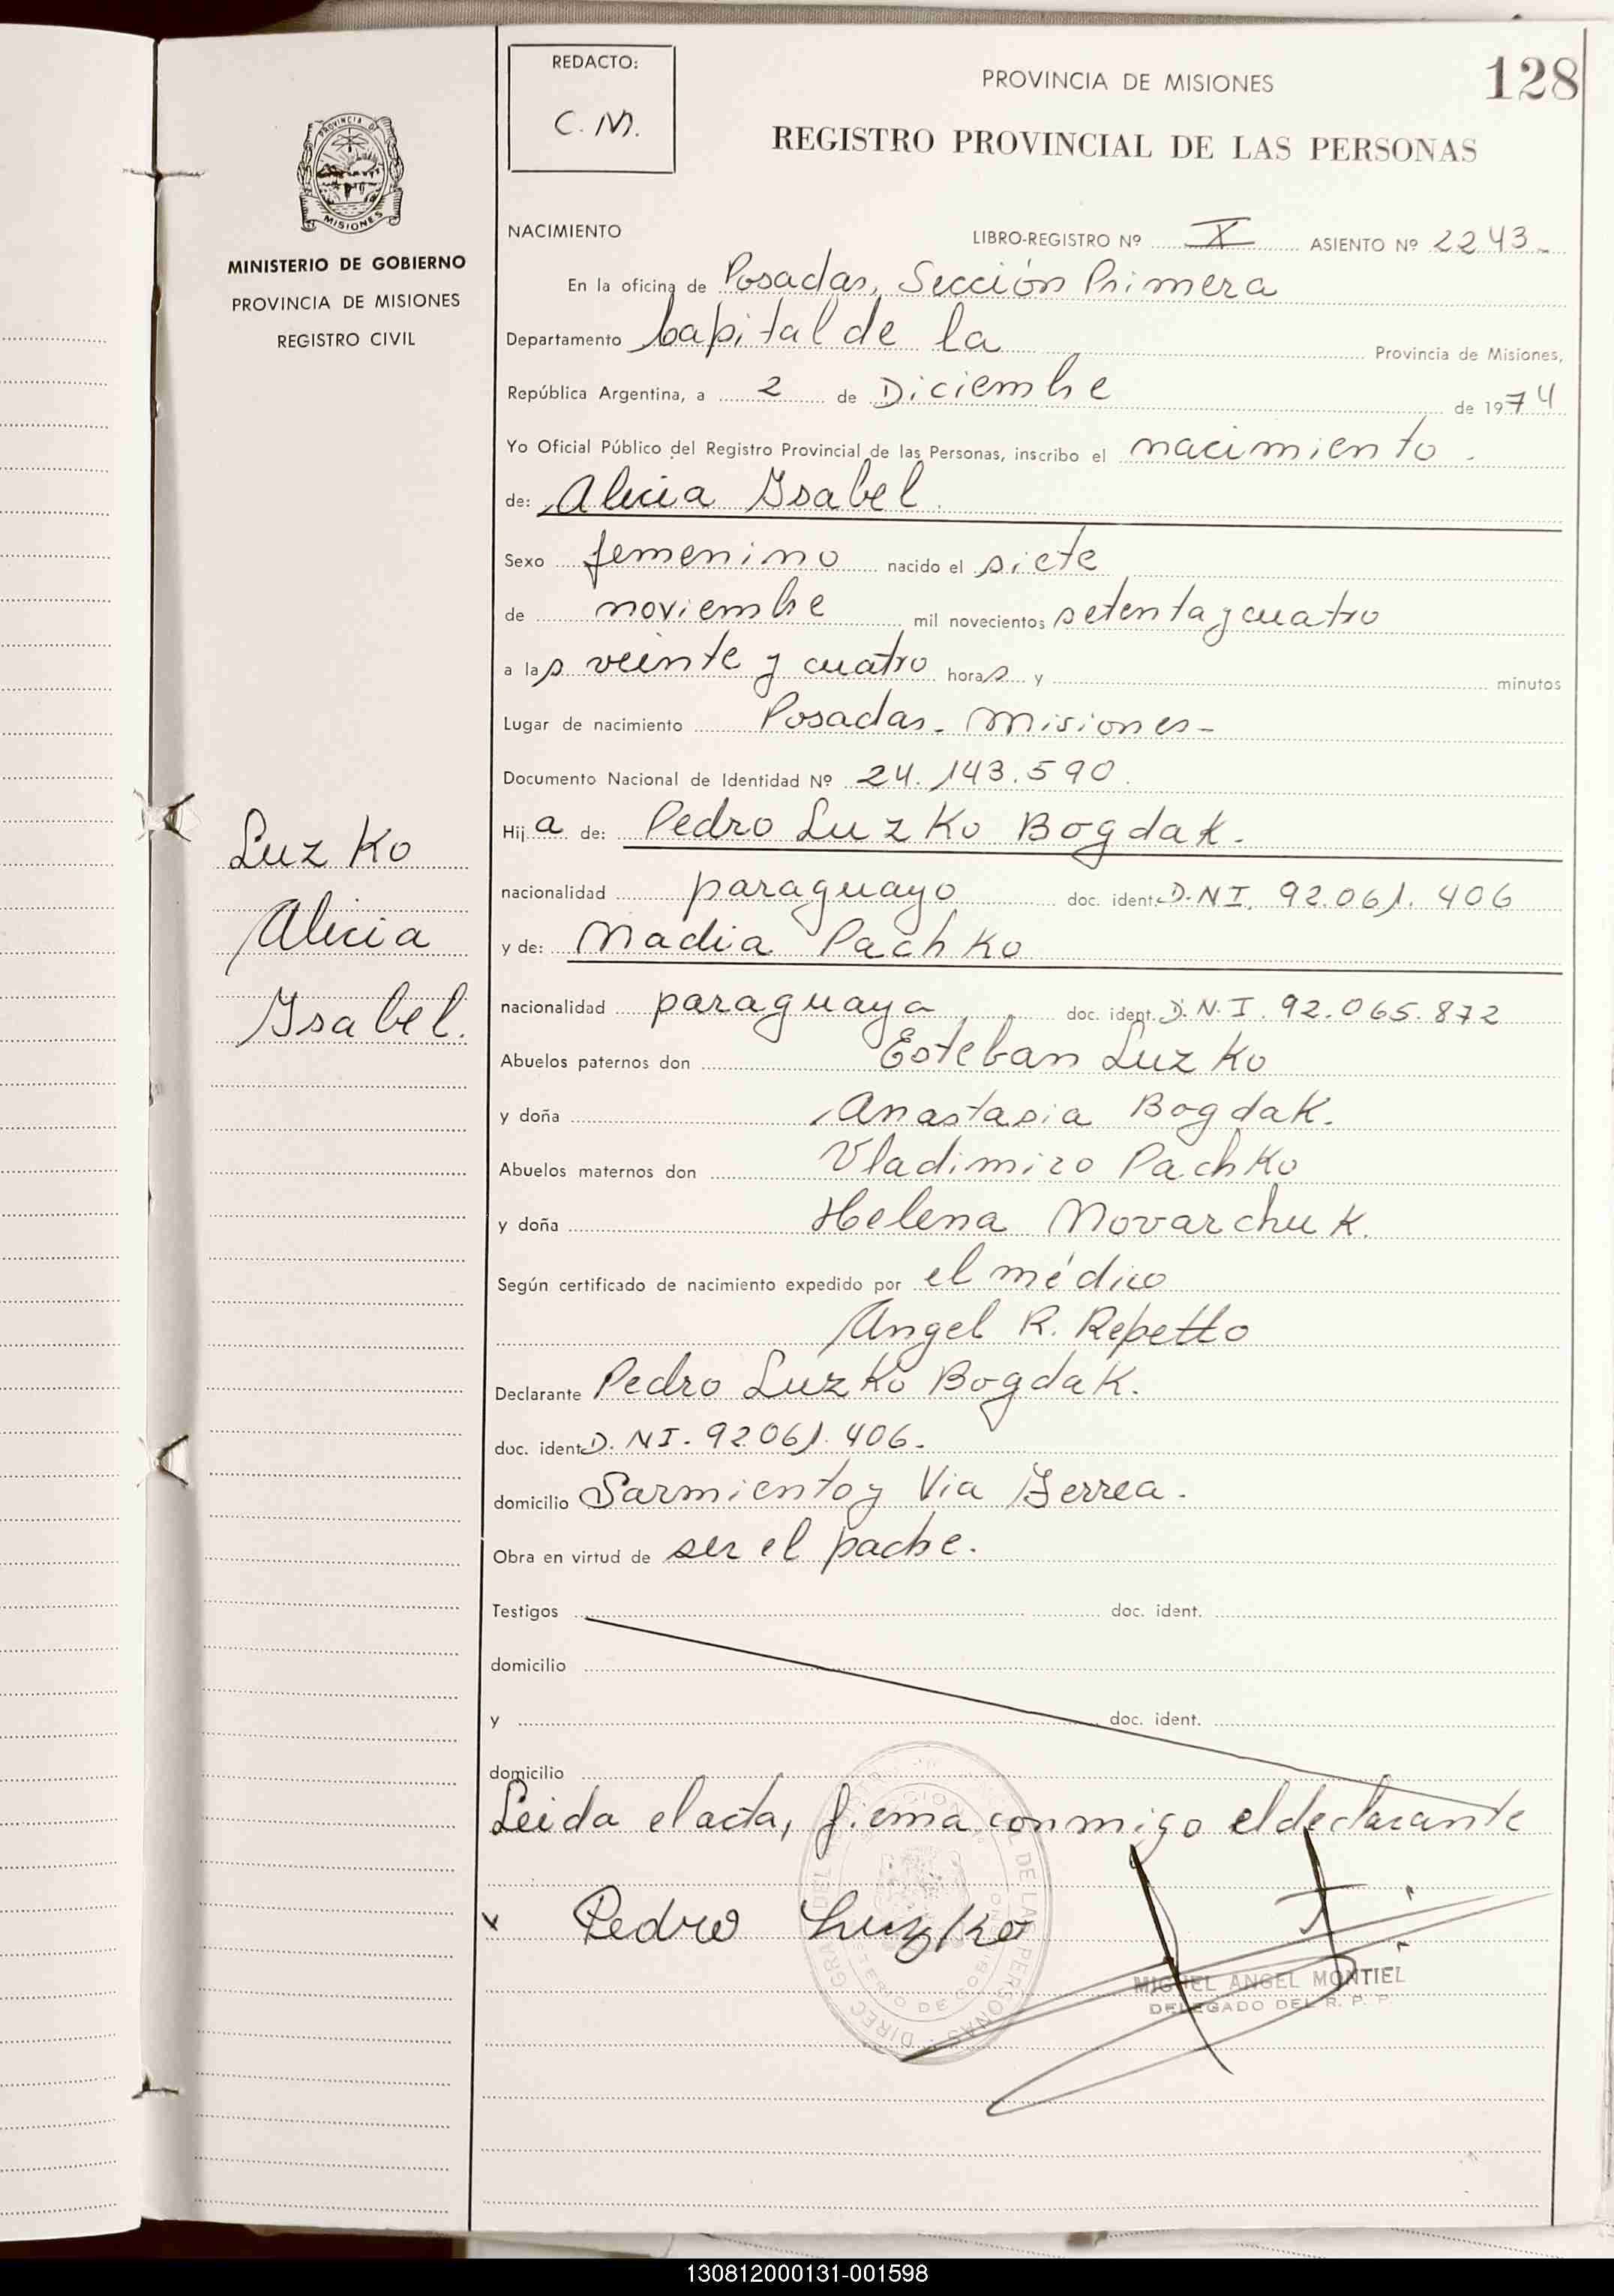 128
REDACTO:
C. M.
PROVINCIA DE MISIONES
REGISTRO PROVINCIAL DE LAS PERSONAS
PROVINCIA DE
MISIONES
MINISTERIO DE GOBIERNO
PROVINCIA DE MISIONES
REGISTRO CIVIL
NACIMIENTO
LIBRO-REGISTRO Nº X ASIENTO Nº 2243-
En la oficina de Posadas, Sección Primera
Departamento Capital de la Provincia de Misiones,
República Argentina, a 2 de Diciembre de 1974
Yo Oficial Público del Registro Provincial de las Personas, inscribo el nacimiento.
de: Alicia Isabel
Sexo femenino nacido el siete
de noviembre mil novecientos setenta y cuatro
a las veinte y cuatro horas y minutos
Lugar de nacimiento Posadas. Misiones-
Documento Nacional de Identidad Nº 24.143.590.
Hija de: Pedro Luzko Bogdak.
nacionalidad paraguayo doc. ident. D.N.I. 92.061.406
y de: Nadia Pachko
nacionalidad paraguaya doc. ident. D.N.I. 92.065.872
Abuelos paternos don Esteban Luzko
y doña Anastasia Bogdak.
Abuelos maternos don Vladimiro Pachko
y doña Helena Novarchuk.
Según certificado de nacimiento expedido por el médico
Angel R. Repetto
Declarante Pedro Luzko Bogdak.
doc. ident D.NI. 92061.406.
domicilio Sarmiento y Via Ferrea.
Obra en virtud de ser el padre.
Testigos doc. ident.
domicilio
y doc. ident.
domicilio
Leida el acta, firma conmigo el declarante
x Pedro Luzko
MIGUEL ANGEL MONTIEL
DELEGADO DEL R. P. P.
Luzko
Alicia
Isabel.
130812000131-001598